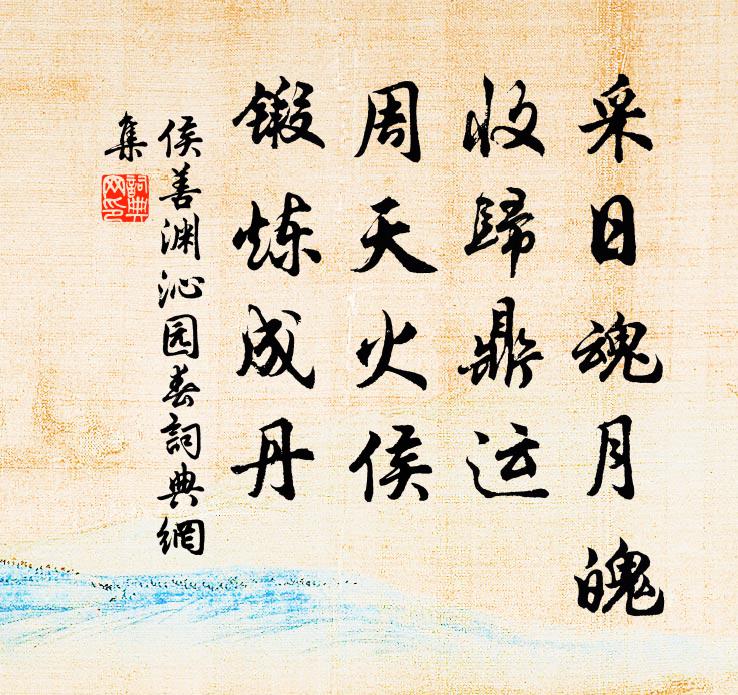 采日魂月魄
收歸鼎运
周天火侯
鍛炼成丹
侯善渊沁园春詞典網
集
詞典
网印